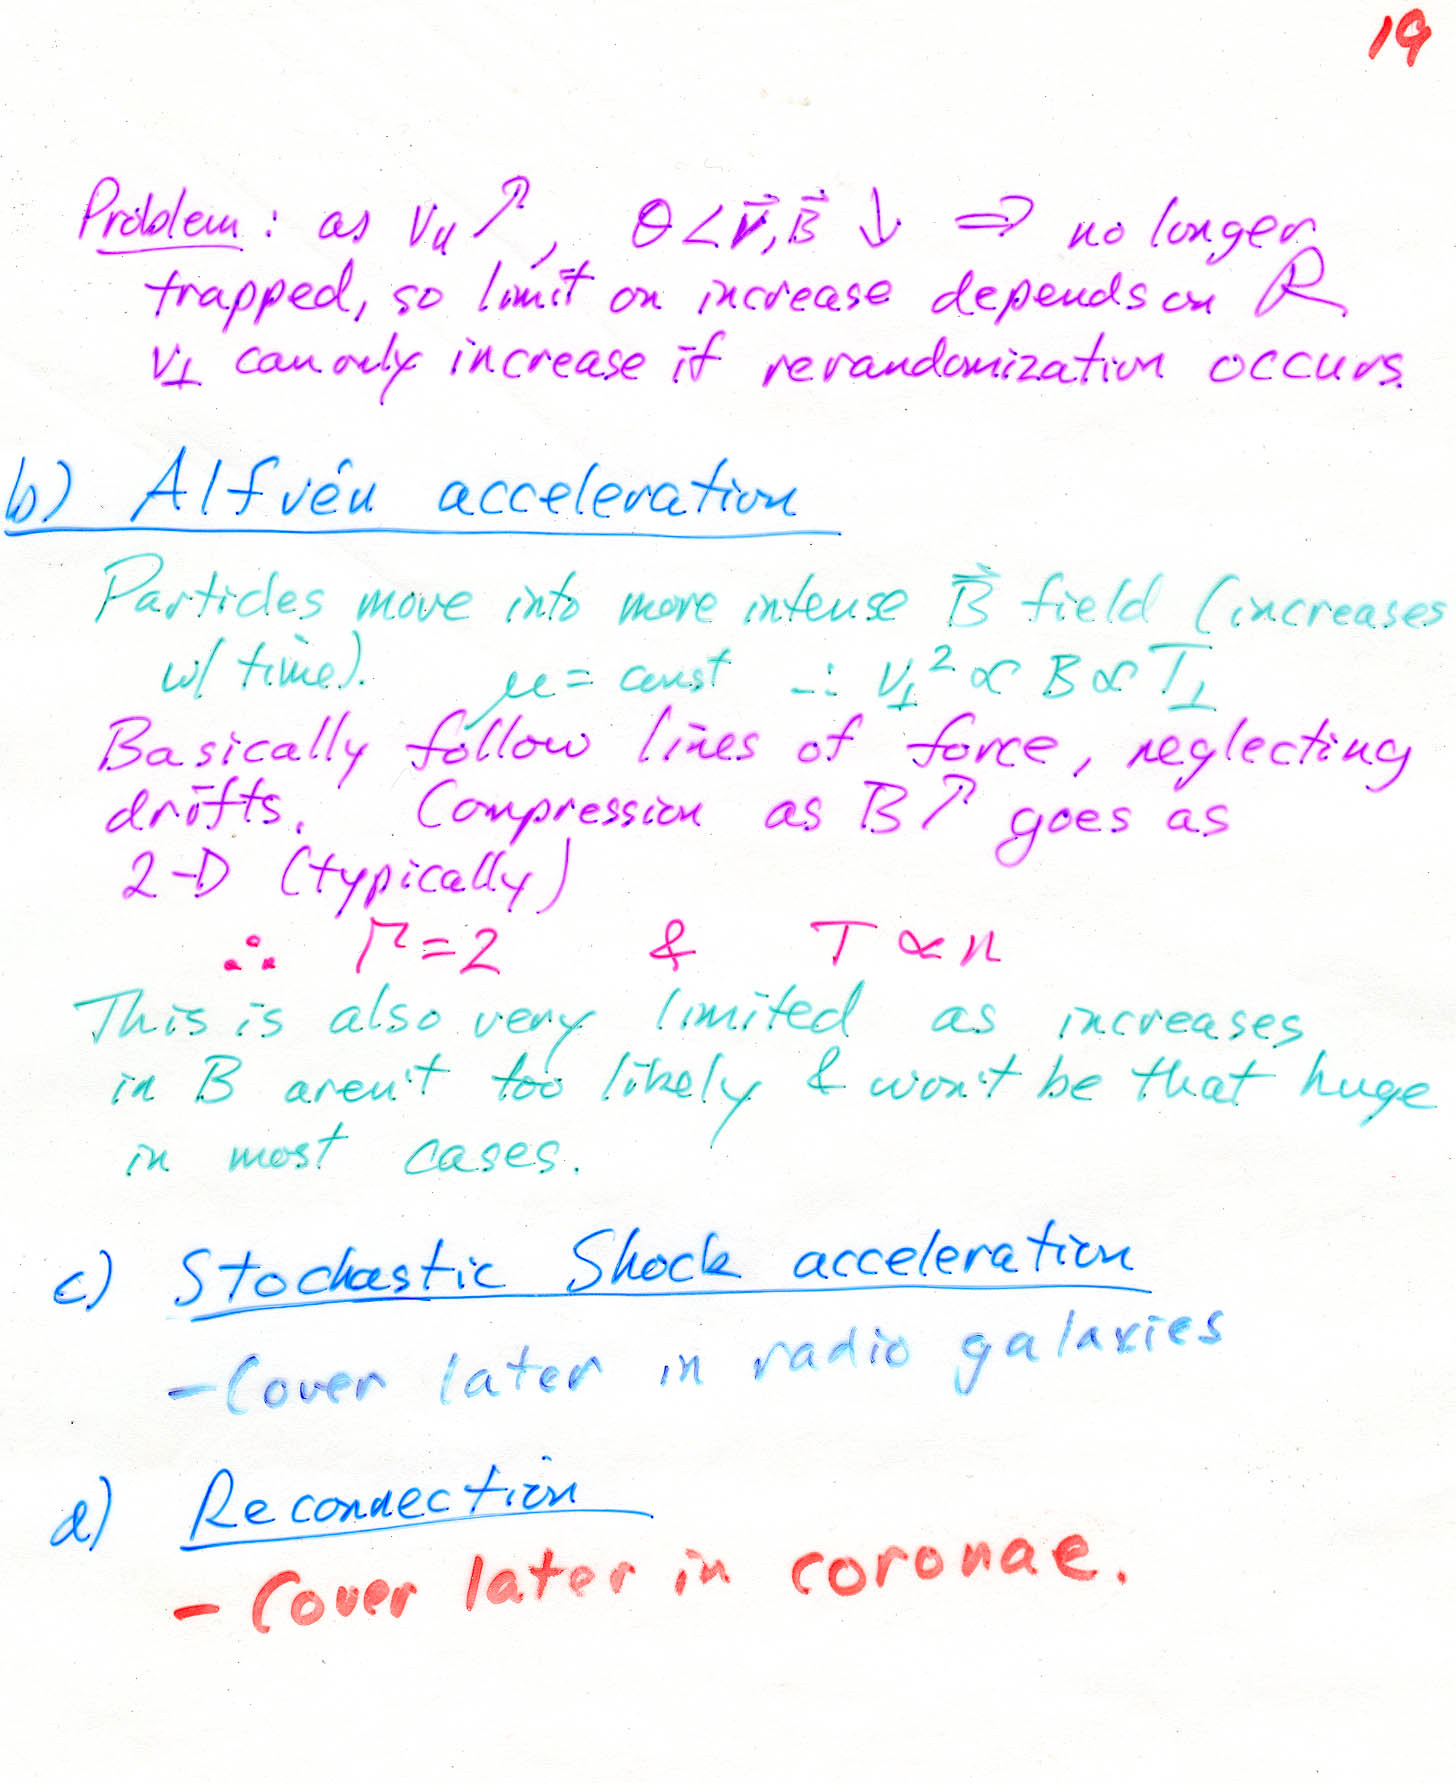 19
Problem: as v∥ ↗, θ<v⃗,B⃗ ↓ ⇒ no longer
trapped, so limit on increase depends on R
v⊥ can only increase if rerandomization occurs.
b) Alfvén acceleration
Particles move into more intense B⃗ field (increases
w/ time). μ = const ∴ v⊥² ∝ B ∝ T⊥
Basically follow lines of force, neglecting
drifts. Compression as B↗ goes as
2-D (typically)
∴ Γ=2 & T ∝ n
This is also very limited as increases
in B aren't too likely & won't be that huge
in most cases.
c) Stochastic Shock acceleration
- Cover later in radio galaxies
d) Reconnection
- Cover later in coronae.